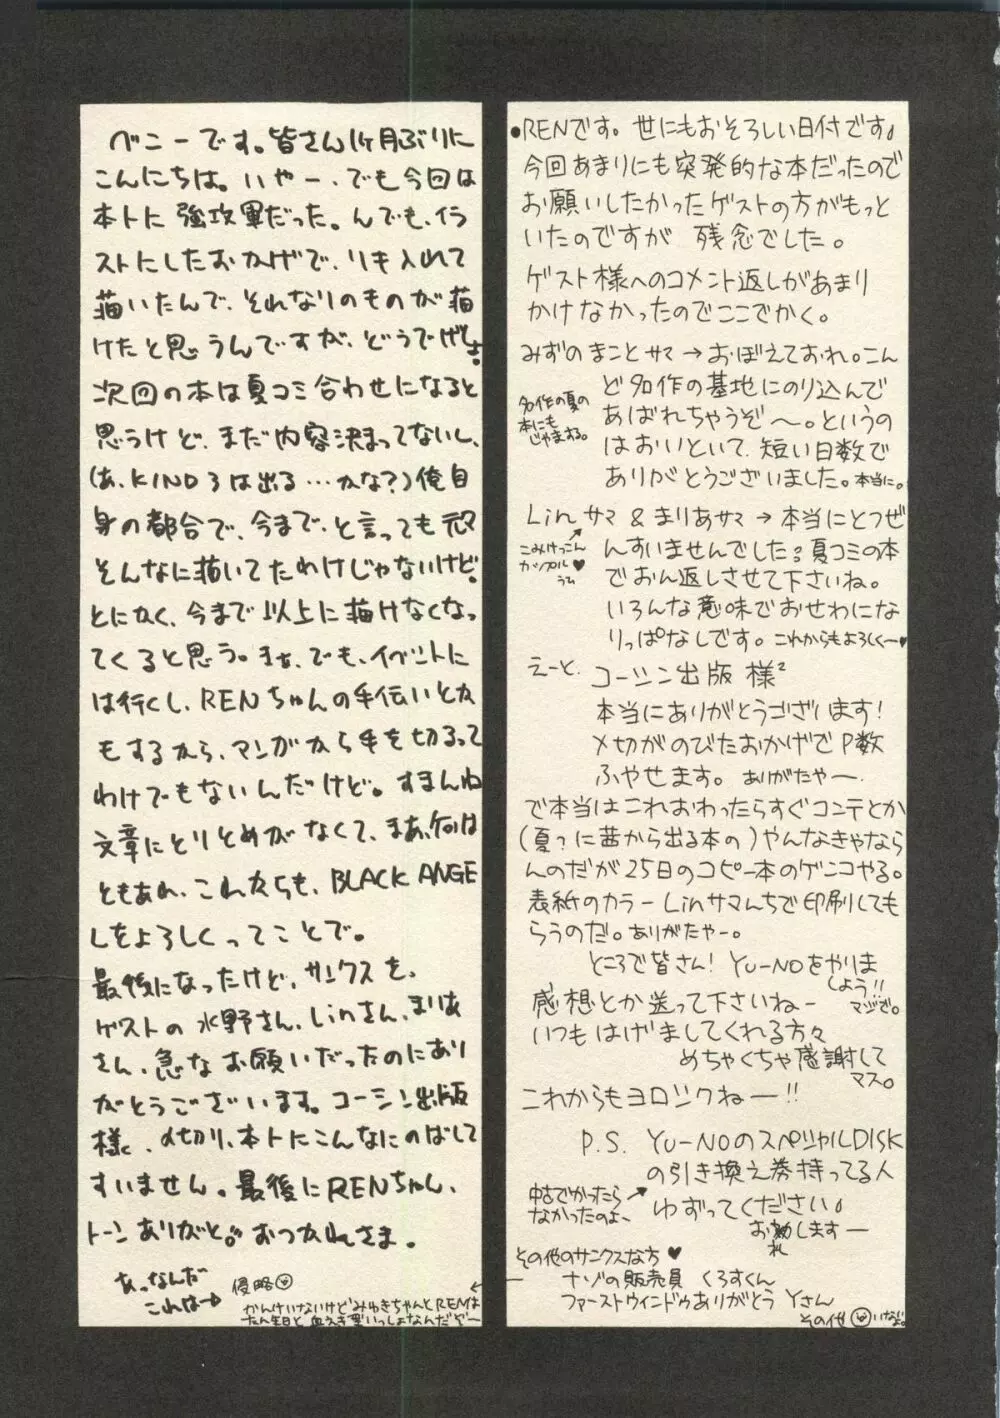 ベニーです。皆さん1ヶ月ぶりに
こんにちは。いやー、でも今回は
本トに強攻軍だった。んでも、イラ
ストにしたおかげで、リキ入れて
描いたんで、それなりのものが描
けたと思うんですが、どうでげしょ!
次回の本は夏コミ合わせになると
思うけど、まだ内容決まってないし、
(あ、KIND3は出る…かな?)俺自
身の都合で、今まで、と言っても元々
そんなに描いてたわけじゃないけど。
とにかく、今まで以上に描けなくなっ
てくると思う。まぁ、でも、イベントに
は行くし、RENちゃんの手伝いとか
もするから、マンガから手を切るって
わけでもないんだけど。すまんね
文章にとりとめがなくて、まあ、何は
ともあれ、これからも、BLACK ANGE
Lをよろしくってことで。
最後になったけど、サンクスを、
ゲストの水野さん、Linさん、まりあ
さん、急なお願いだったのにあり
がとうございます。コーシン出版
様、〆切り、本トにこんなにのばして
すいません。最後にRENちゃん、
トーンありがと。おつかれさま。
あっなんだ
これは→
侵略
かんけいないけどみゆきちゃんとRENは
たん生日と血えき型いっしょなんだぞー
●RENです。世にもおそろしい日付です。
今回あまりにも突発的な本だったので
お願いしたかったゲストの方がもっと
いたのですが 残念でした。
ゲスト様へのコメント返しがあまり
かけなかったのでここでかく。
みずのまことサマ→おぼえておれ。こん
ど名作の基地にのり込んで
あばれちゃうぞ〜。というの
はおいといて、短い日数で
ありがとうございました。本当に。
名作の夏の
本にも
じゃまする。
Linサマ&まりあサマ→本当にとつぜ
んすいませんでした。夏コミの本
でおん返しさせて下さいね。
いろんな意味でおせわにな
りっぱなしです。これからもよろしく〜♥
こみけっこん
カップル♥
えーと、コーシン出版 様²
本当にありがとうございます!
〆切がのびたおかげでP数
ふやせます。ありがたやー。
で本当はこれおわったらすぐコンテとか
(夏?に茜から出る本の)やんなきゃなら
んのだが25日のコピー本のゲンコやる。
表紙のカラーLinサマんちで印刷しても
らうのだ。ありがたやー。
ところで皆さん!YU-NOをやりま
しょう!!
マジで。
感想とか送って下さいねー
いつもはげましてくれる方々
めちゃくちゃ感謝して
マス。
これからもヨロシクねー!!
P.S. YU-NOのスペシャルDISK
の引き換え券持ってる人
ゆずってください。
お礼しますー
中古でかったら
なかったのよ、
その他のサンクスな方♥
ナゾの販売員 くろすくん
ファーストウインドゥありがとう Yさん
その他